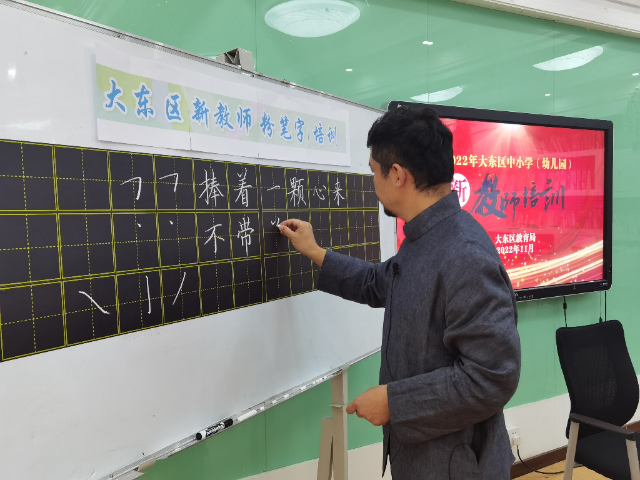 大东区新教师粉笔字培训
捧着一颗心来
不带
2022年大东区中小学（幼儿园）
新教师培训
大东区教育局
2022年11月